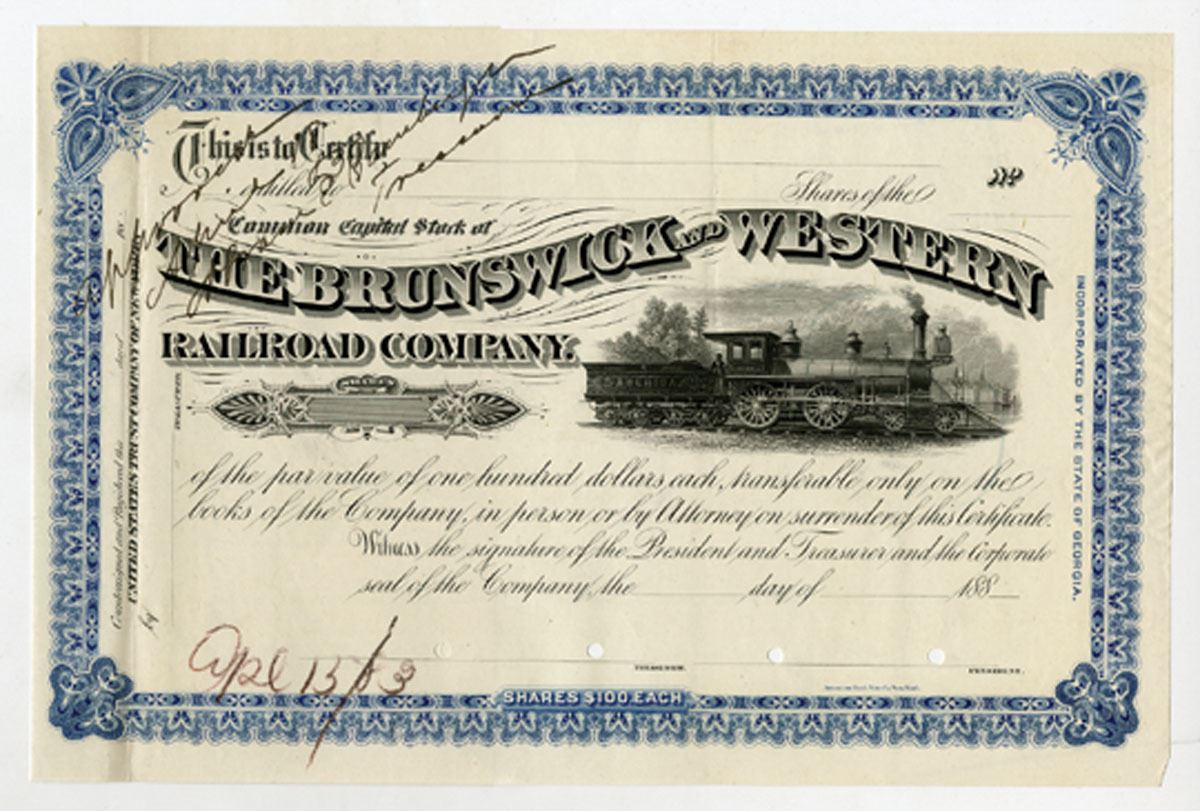 This is to Certify
entitled to Shares of the
Common Capital Stock of
THE BRUNSWICK AND WESTERN
RAILROAD COMPANY.
SHARES
of the par value of one hundred dollars each, transferable only on the
books of the Company, in person or by Attorney on surrender of this Certificate.
Witness the signature of the President and Treasurer and the Corporate
seal of the Company, the day of 188
TREASURER.
PRESIDENT.
SHARES $100 EACH
INCORPORATED BY THE STATE OF GEORGIA.
Countersigned and Registered this day of 188
UNITED STATES TRUST COMPANY OF NEW YORK
by
Apl 15/83
Approved
Treasurer